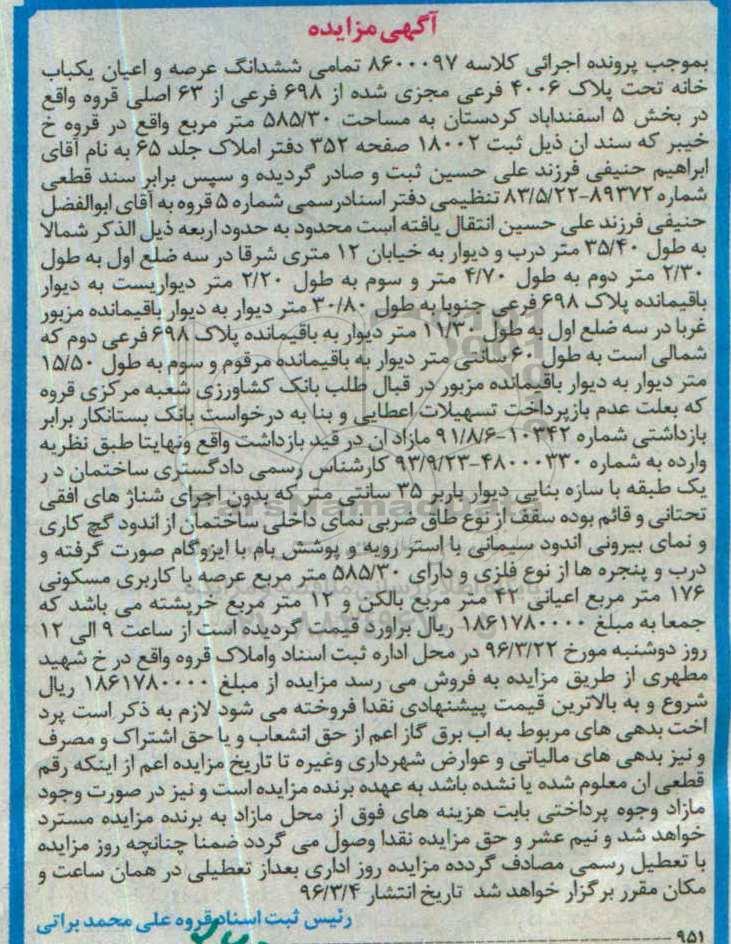 آگهی مزایده
بموجب پرونده اجرائی کلاسه ۸۶۰۰۰۹۷ تمامی ششدانگ عرصه و اعیان یکباب
خانه تحت پلاک ۴۰۰۶ فرعی مجزی شده از ۶۹۸ فرعی از ۶۳ اصلی قروه واقع
در بخش ۵ اسفنداباد کردستان به مساحت ۵۸۵/۳۰ متر مربع واقع در قروه خ
خیبر که سند ان ذیل ثبت ۱۸۰۰۲ صفحه ۳۵۲ دفتر املاک جلد ۶۵ به نام آقای
ابراهیم حنیفی فرزند علی حسین ثبت و صادر گردیده و سپس برابر سند قطعی
شماره ۸۹۳۷۲-۸۳/۵/۲۲ تنظیمی دفتر اسنادرسمی شماره ۵ قروه به آقای ابوالفضل
حنیفی فرزند علی حسین انتقال یافته است محدود به حدود اربعه ذیل الذکر شمالا
به طول ۳۵/۴۰ متر درب و دیوار به خیابان ۱۲ متری شرقا در سه ضلع اول به طول
۲/۳۰ متر دوم به طول ۴/۷۰ متر و سوم به طول ۲/۲۰ متر دیواریست به دیوار
باقیمانده پلاک ۶۹۸ فرعی جنوبا به طول ۳۰/۸۰ متر دیوار به دیوار باقیمانده مزبور
غربا در سه ضلع اول به طول ۱۱/۳۰ متر دیوار به باقیمانده پلاک ۶۹۸ فرعی دوم که
شمالی است به طول ۶۰ سانتی متر دیوار به باقیمانده مرقوم و سوم به طول ۱۵/۵۰
متر دیوار به دیوار باقیمانده مزبور در قبال طلب بانک کشاورزی شعبه مرکزی قروه
که بعلت عدم بازپرداخت تسهیلات اعطایی و بنا به درخواست بانک بستانکار برابر
بازداشتی شماره ۱۰۳۴۲-۹۱/۸/۶ مازاد ان در قید بازداشت واقع ونهایتا طبق نظریه
وارده به شماره ۴۸۰۰۰۳۳۰-۹۳/۹/۲۳ کارشناس رسمی دادگستری ساختمان در
یک طبقه با سازه بنایی دیوار باربر ۳۵ سانتی متر که بدون اجرای شناژ های افقی
تحتانی و قائم بوده سقف از نوع طاق ضربی نمای داخلی ساختمان از اندود گچ کاری
و نمای بیرونی اندود سیمانی با استر رویه و پوشش بام با ایزوگام صورت گرفته و
درب و پنجره ها از نوع فلزی و دارای ۵۸۵/۳۰ متر مربع عرصه با کاربری مسکونی
۱۷۶ متر مربع اعیانی ۴۲ متر مربع بالکن و ۱۲ متر مربع خرپشته می باشد که
جمعا به مبلغ ۱۸۶۱۷۸۰۰۰۰ ریال براورد قیمت گردیده است از ساعت ۹ الی ۱۲
روز دوشنبه مورخ ۹۶/۳/۲۲ در محل اداره ثبت اسناد واملاک قروه واقع در خ شهید
مطهری از طریق مزایده به فروش می رسد مزایده از مبلغ ۱۸۶۱۷۸۰۰۰۰ ریال
شروع و به بالاترین قیمت پیشنهادی نقدا فروخته می شود لازم به ذکر است پرد
اخت بدهی های مربوط به اب برق گاز اعم از حق انشعاب و یا حق اشتراک و مصرف
و نیز بدهی های مالیاتی و عوارض شهرداری وغیره تا تاریخ مزایده اعم از اینکه رقم
قطعی ان معلوم شده یا نشده باشد به عهده برنده مزایده است و نیز در صورت وجود
مازاد وجوه پرداختی بابت هزینه های فوق از محل مازاد به برنده مزایده مسترد
خواهد شد و نیم عشر و حق مزایده نقدا وصول می گردد ضمنا چنانچه روز مزایده
با تعطیل رسمی مصادف گردده مزایده روز اداری بعداز تعطیلی در همان ساعت و
مکان مقرر برگزار خواهد شد تاریخ انتشار ۹۶/۳/۴
رئیس ثبت اسناد قروه علی محمد براتی
۹۵۱
ParsNamadData